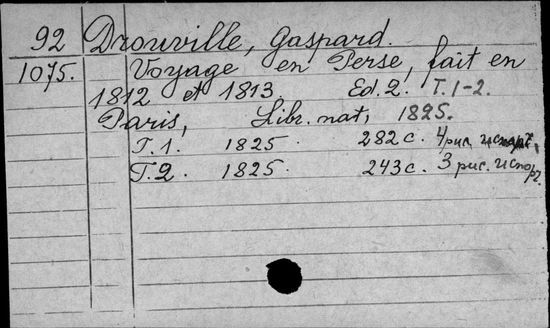 92 Drouville, Gaspard.
1075. Voyage en Perse, fait en
1812 et 1813. Ed. 2. T. 1-2.
Paris, Libr. nat, 1825.
T. 1. 1825. 282 с. 4 рис. и портр.
T. 2. 1825. 243 с. 3 рис. и